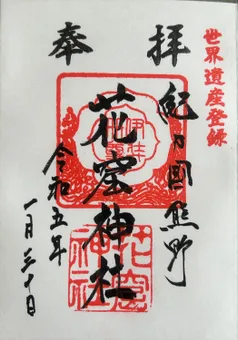 世界遺産登録
奉拝
紀乃國熊野
花窟神社
令和五年
一月三十日
花窟
神社